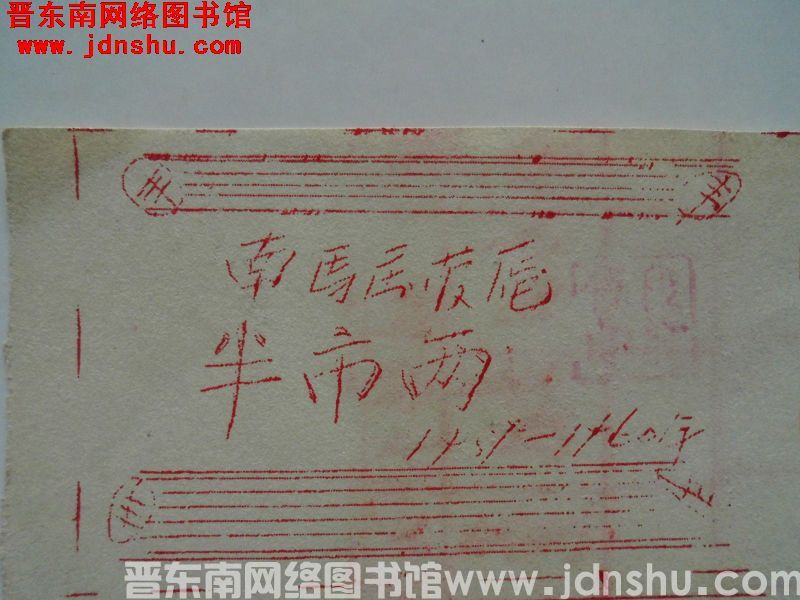 晋东南网络图书馆
www.jdnshu.com
南馬
半市两
1959-1960年
晋东南网络图书馆www.jdnshu.com